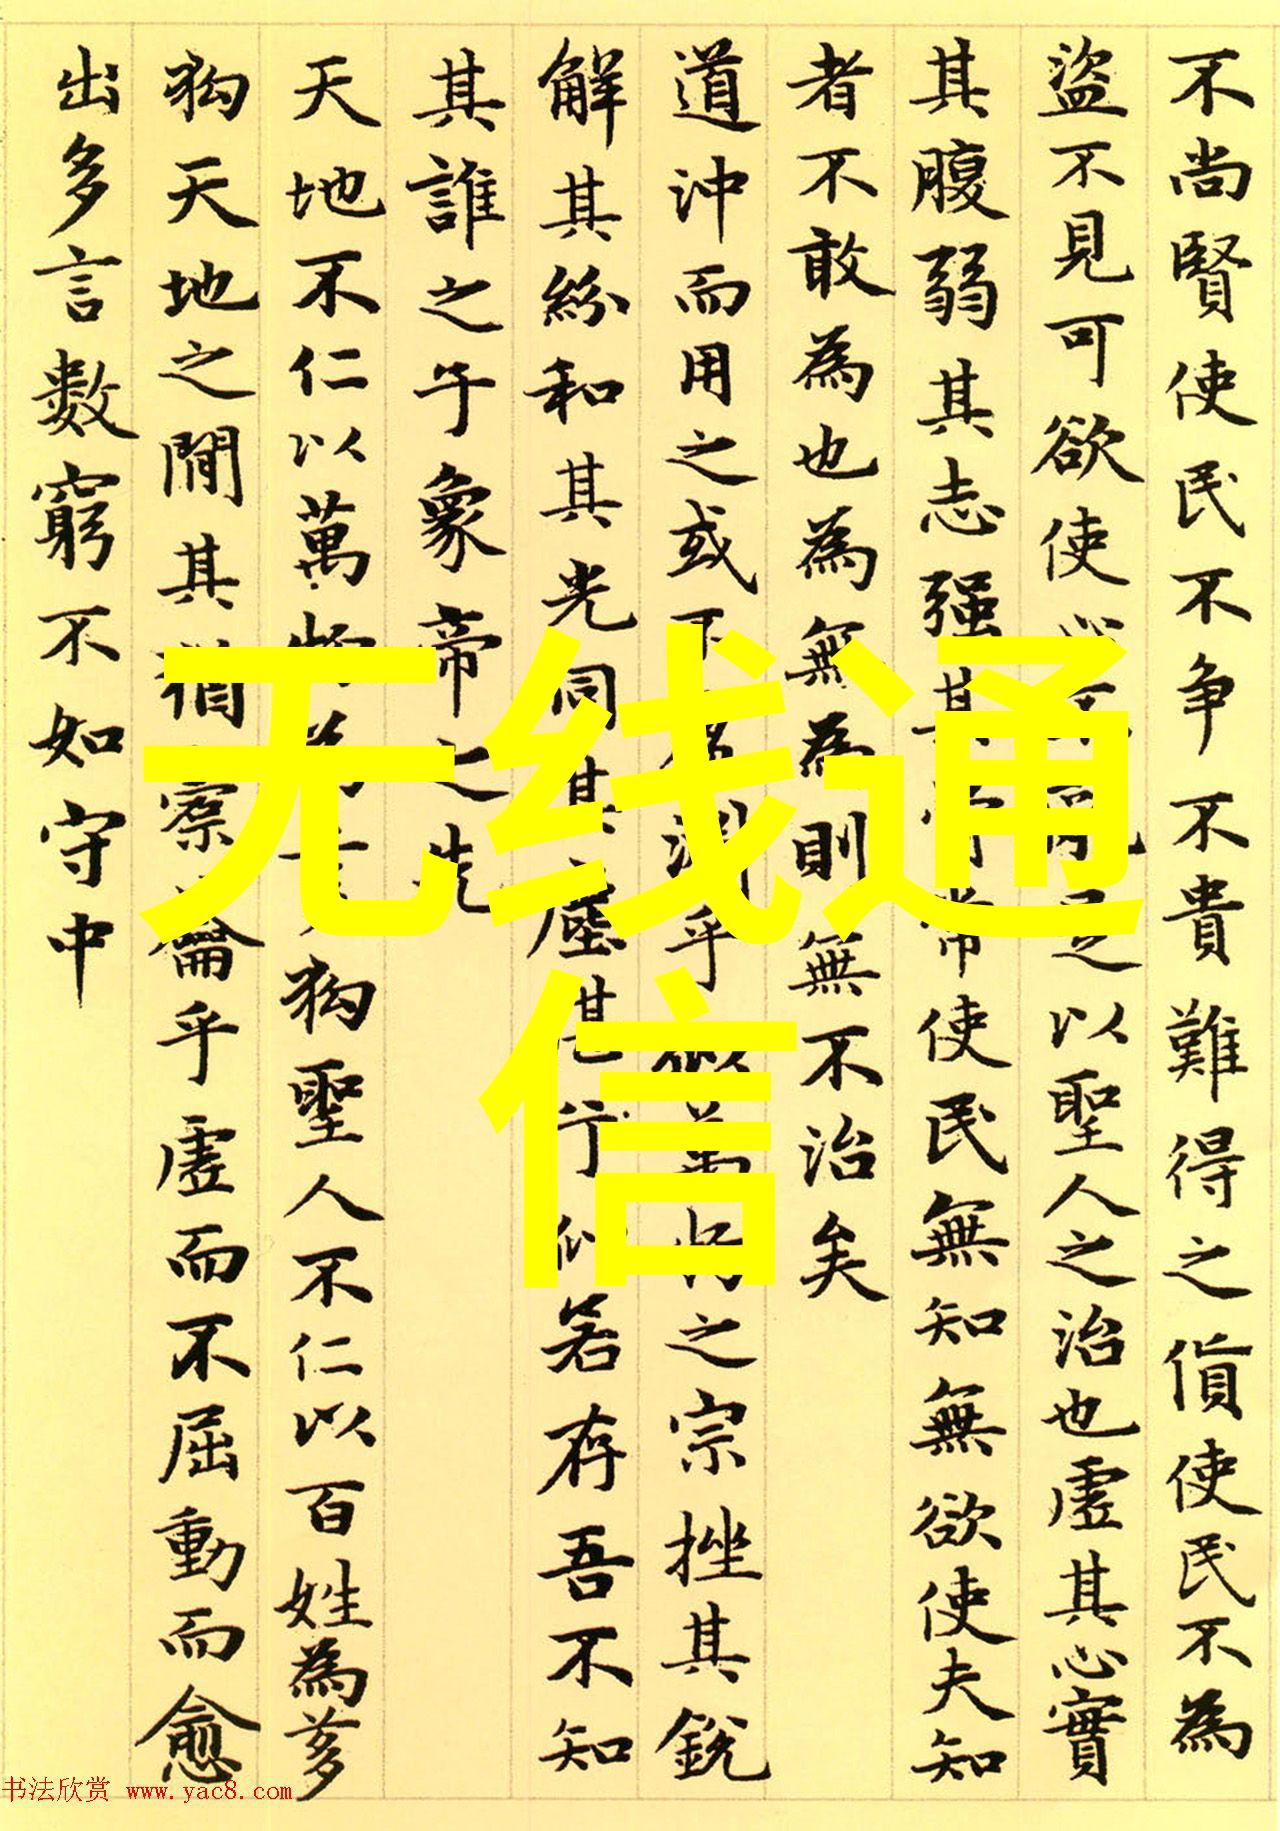 不尚賢使民不争不貴難得之貨使民不為
盜不見可欲使以聖人之治也虛其心實
其腹弱其志强其常使民無知無欲使夫知
者不敢為也為無為則無不治矣
道沖而用之或淵乎之宗挫其銳
解其紛和其光同其塵若存吾不知
其誰之子象帝之先
天地不仁以萬狗聖人不仁以百姓為芻
狗天地之閒其猶橐籥乎虛而不屈動而愈
出多言數窮不如守中
无线通
信
书法欣赏 www.yac8.com